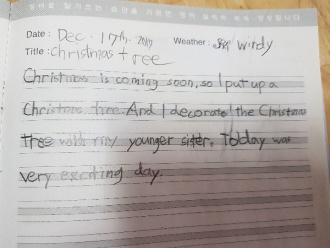 Date : Dec. 17th. 2017 Weather : windy
Title : Christmas tree
Christmas is coming soon, so I put up a
Christmas tree. And I decorated the Christmas
tree with my younger sister. Today was
very exciting day.